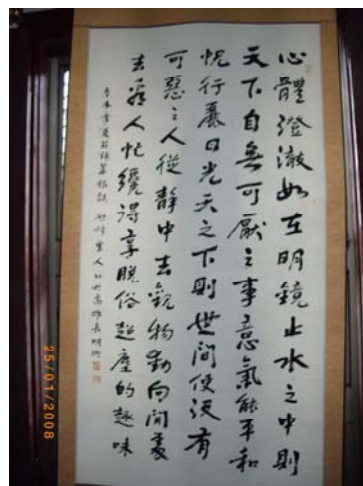 心體澄澈如在明鏡止水之中則
天下自無可厭之事意氣能平和
恍行麗日光天之下則世間便沒有
可惡之人從靜中去觀物動向閒處
去看人忙纔得享脫俗超塵的趣味
25/01/2008